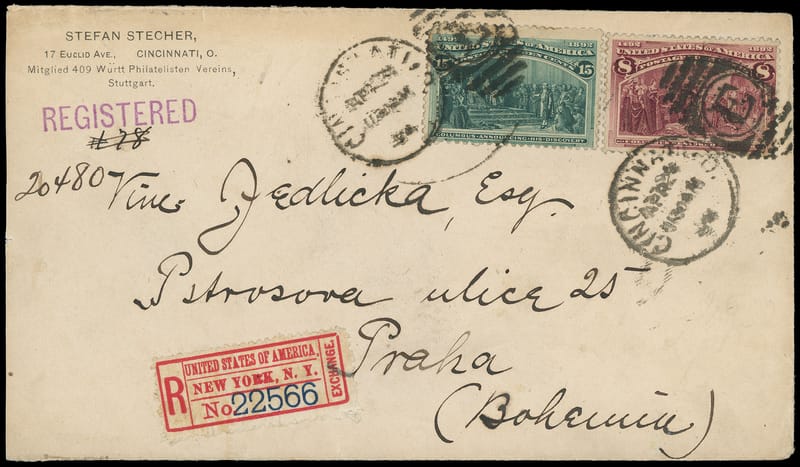 STEFAN STECHER,
17 EUCLID AVE., CINCINNATI, O.
Mitglied 409 Württ Philatelisten Vereins,
Stuttgart.
REGISTERED
#78
20480
Vinc. Jedlicka, Esq.
Pstrosova ulice 25
Praha
(Bohemia)
1492 1892
UNITED STATES OF AMERICA
15 15
COLUMBUS ANNOUNCING HIS DISCOVERY
1492 1892
UNITED STATES OF AMERICA
POSTAGE
8 8
CINCINNATI
CINCINNATI, O.
R
UNITED STATES OF AMERICA.
NEW YORK, N. Y.
No 22566
EXCHANGE.